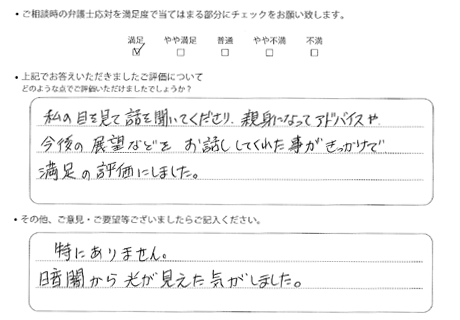 ・ご相談時の弁護士応対を満足度で当てはまる部分にチェックをお願い致します。
満足 やや満足 普通 やや不満 不満
☑ □ □ □ □
・上記でお答えいただきましたご評価について
どのような点でご評価いただけましたでしょうか？
私の目を見て話を聞いてくださり、親身になってアドバイスや
今後の展望などを お話ししてくれた事がきっかけで
満足の評価にしました。
・その他、ご意見・ご要望等ございましたらご記入ください。
特にありません。
暗闇から光が見えた気がしました。